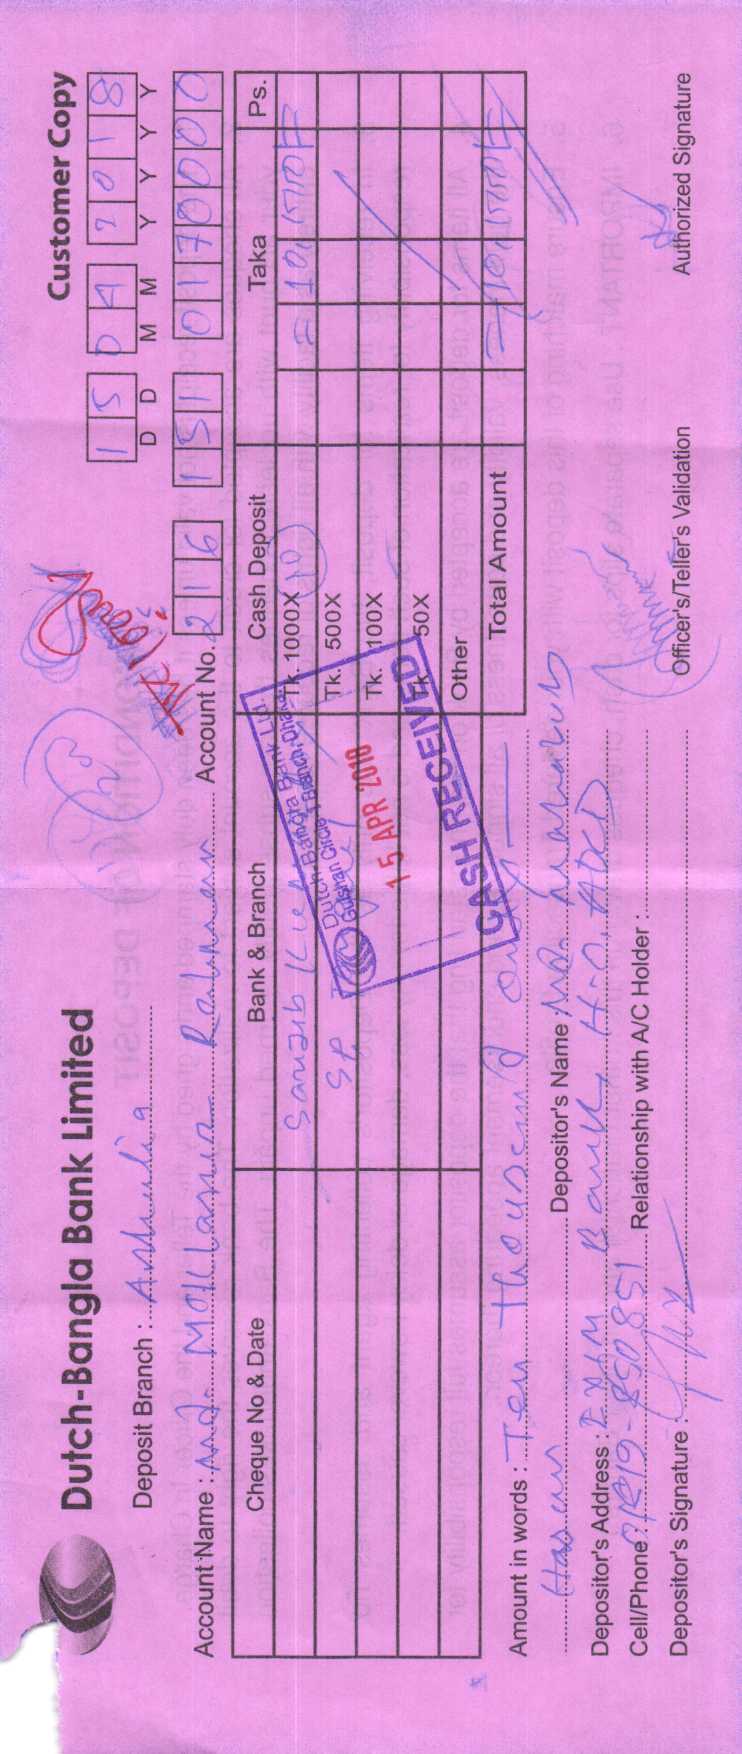 Dutch-Bangla Bank Limited
Customer Copy
Deposit Branch :
15 04 2018
D D M M Y Y Y Y
Account Name : Md. Rahman Account No. 216 151 0170000
Cheque No & Date Bank & Branch Cash Deposit Taka Ps.
Tk. 1000X 10 = 10,000/-
Tk. 500X
Tk. 100X
Tk. 50X
Other
Total Amount = 10,000/-
Dutch-Bangla Bank Ltd.
Gulshan Circle-1 Branch, Dhaka
15 APR 2018
CASH RECEIVED
Amount in words : Ten thousand only
Hasan Depositor's Name : Md. Mahabub
Depositor's Address : EXIM Bank, H.O,
Cell/Phone : Relationship with A/C Holder :
Depositor's Signature : Officer's/Teller's Validation Authorized Signature